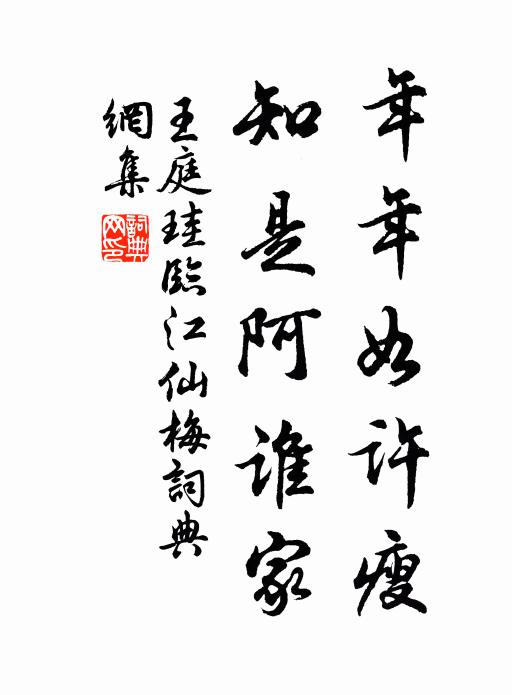 年年如許瘦
知是阿誰家
王庭珪臨江仙梅詞典
網集
詞典網印